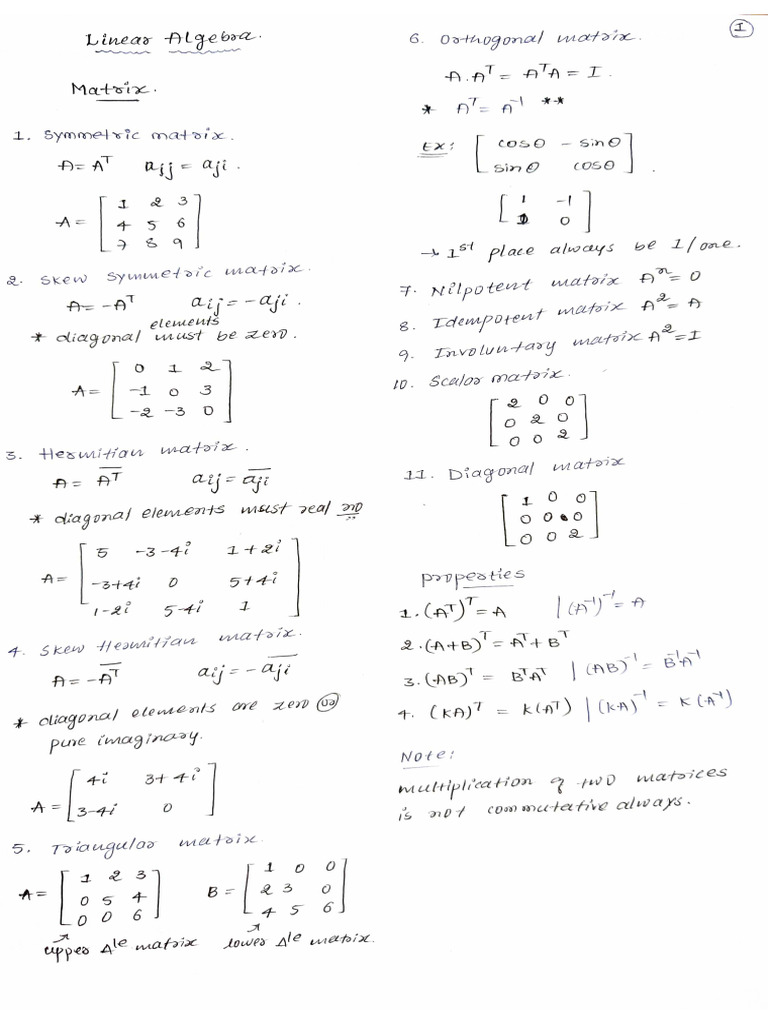 Linear Algebra.
Matrix.
1. Symmetric matrix.
A = Aᵀ  aij = aji .
A = [ 1 2 3
4 5 6
7 8 9 ]
2. Skew Symmetric matrix.
A = -Aᵀ  aij = -aji .
* diagonal elements must be zero.
A = [ 0 1 2
-1 0 3
-2 -3 0 ]
3. Hermitian matrix.
A = \overline{Aᵀ}  aij = \overline{aji}
* diagonal elements must real no
A = [ 5 -3-4i 1+2i
-3+4i 0 5+4i
1-2i 5-4i 1 ]
4. Skew Hermitian matrix.
A = -\overline{Aᵀ}  aij = -\overline{aji}
* diagonal elements are zero (or)
pure imaginary.
A = [ 4i 3+4i
3-4i 0 ]
5. Triangular matrix.
A = [ 1 2 3  B = [ 1 0 0
0 5 4  2 3 0
0 0 6 ]  4 5 6 ]
upper Δle matrix  lower Δle matrix.
I
6. Orthogonal matrix.
A.Aᵀ = AᵀA = I.
* Aᵀ = A⁻¹ **
Ex: [ cosθ -sinθ
sinθ cosθ ] .
[ 1 -1
1 0 ]
→ 1st place always be 1/one.
7. Nilpotent matrix Aⁿ = 0
8. Idempotent matrix A² = A
9. Involuntary matrix A² = I
10. Scalar matrix.
[ 2 0 0
0 2 0
0 0 2 ]
11. Diagonal matrix
[ 1 0 0
0 0 0
0 0 2 ]
Properties
1. (Aᵀ)ᵀ = A | (A⁻¹)⁻¹ = A
2. (A+B)ᵀ = Aᵀ + Bᵀ
3. (AB)ᵀ = BᵀAᵀ | (AB)⁻¹ = B⁻¹A⁻¹
4. (KA)ᵀ = K(Aᵀ) | (KA)⁻¹ = K(A⁻¹)
Note:
multiplication of two matrices
is not commutative always.